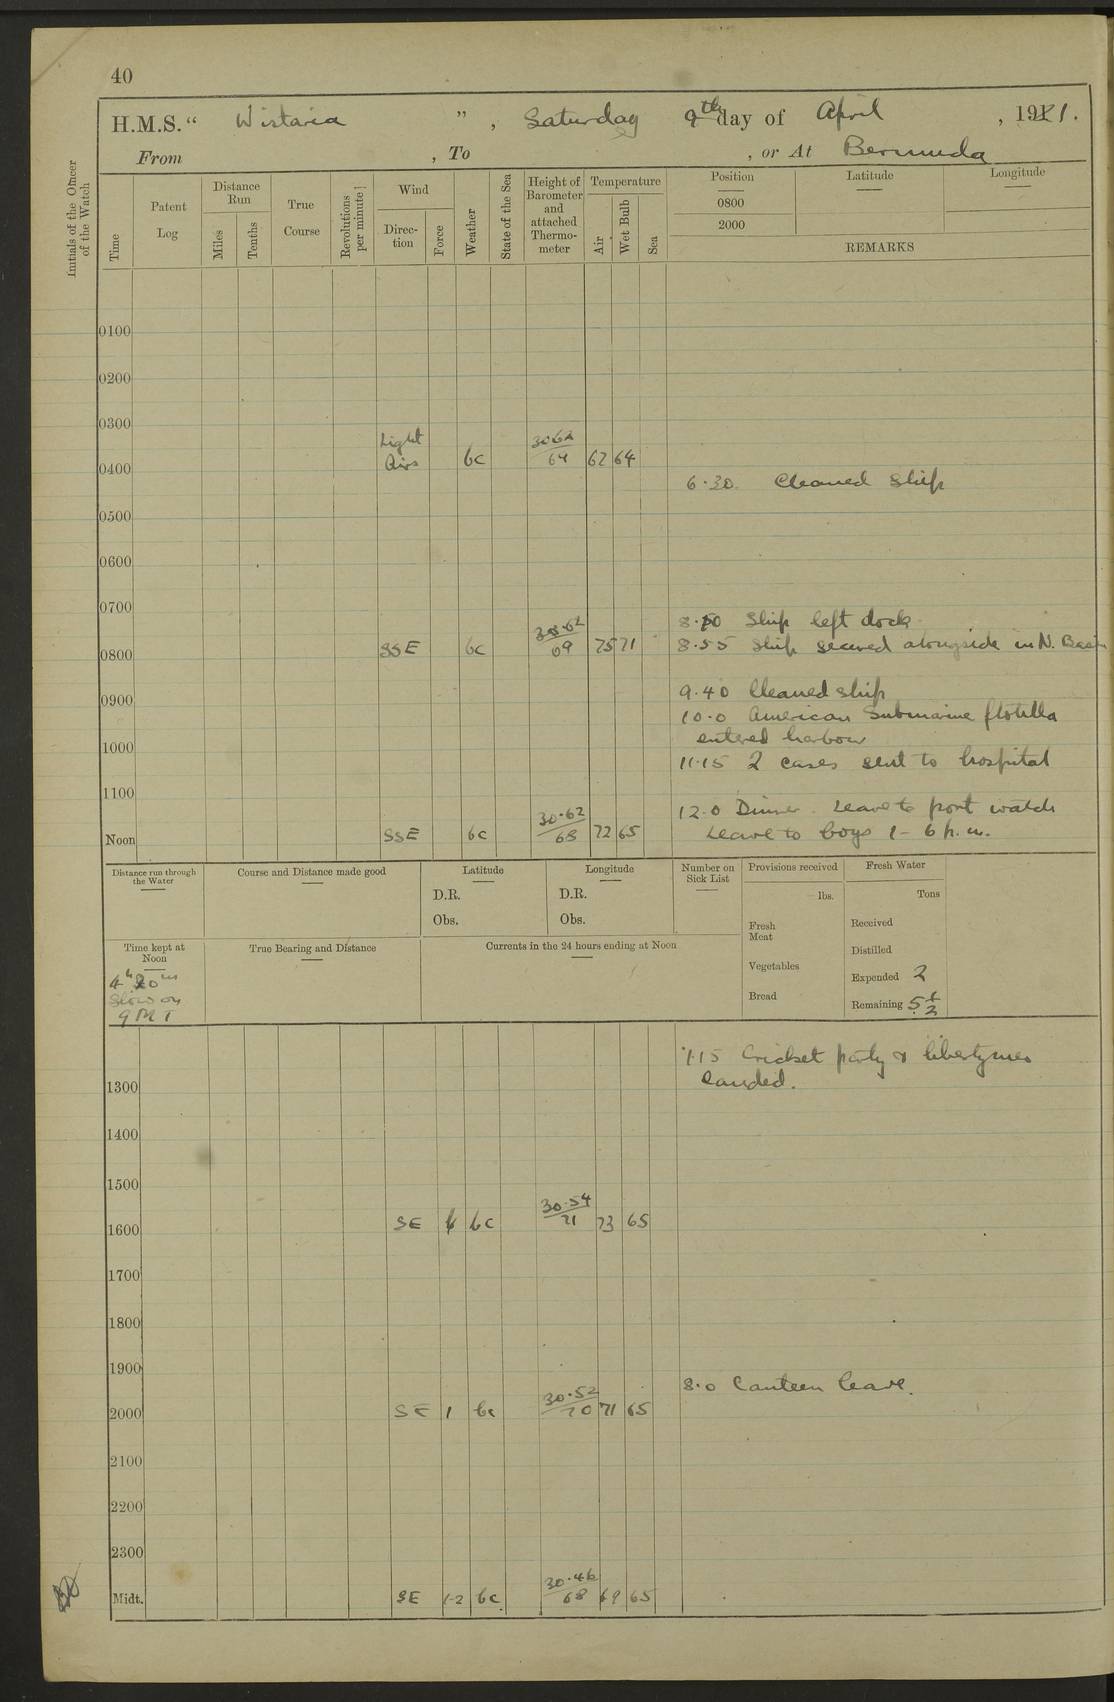 40
H.M.S. “ Wistaria ” , Saturday 9th day of April , 1921.
From , To , or At Bermuda
Initials of the Officer of the Watch
Time
Patent Log
Distance Run
Miles
Tenths
True Course
Revolutions per minute
Wind
Direc-tion
Force
Weather
State of the Sea
Height of Barometer and attached Thermo-meter
Temperature
Air
Wet Bulb
Sea
Position Latitude Longitude
0800
2000
REMARKS
0100
0200
0300
Light Airs bc 30.62 / 64 62 64
0400
6.30 Cleaned Ship
0500
0600
0700
8.10 Ship left dock
SSE bc 30.62 / 69 75 71
8.55 Ship secured alongside in N. Basin
0800
9.40 Cleaned ship
0900
10.0 American Submarine flotilla
entered harbour
1000
11.15 2 cases sent to hospital
1100
12.0 Dinner. Leave to port watch
Noon SSE bc 30.62 / 68 72 65
Leave to boys 1 – 6 p.m.
Distance run through the Water
Course and Distance made good
Latitude
D.R.
Obs.
Longitude
D.R.
Obs.
Number on Sick List
Provisions received
lbs.
Fresh Meat
Vegetables
Bread
Fresh Water
Tons
Received
Distilled
Expended 2
Remaining 5½
Time kept at Noon
4h 20m
Slow on
GMT
True Bearing and Distance
Currents in the 24 hours ending at Noon
1.15 Cricket party & libertymen
landed.
1300
1400
1500
SE bc 30.54 / 71 73 65
1600
1700
1800
1900
8.0 Canteen leave.
2000 SE 1 bc 30.52 / 70 71 65
2100
2200
2300
Midt. SE 1-2 bc 30.46 / 68 69 65